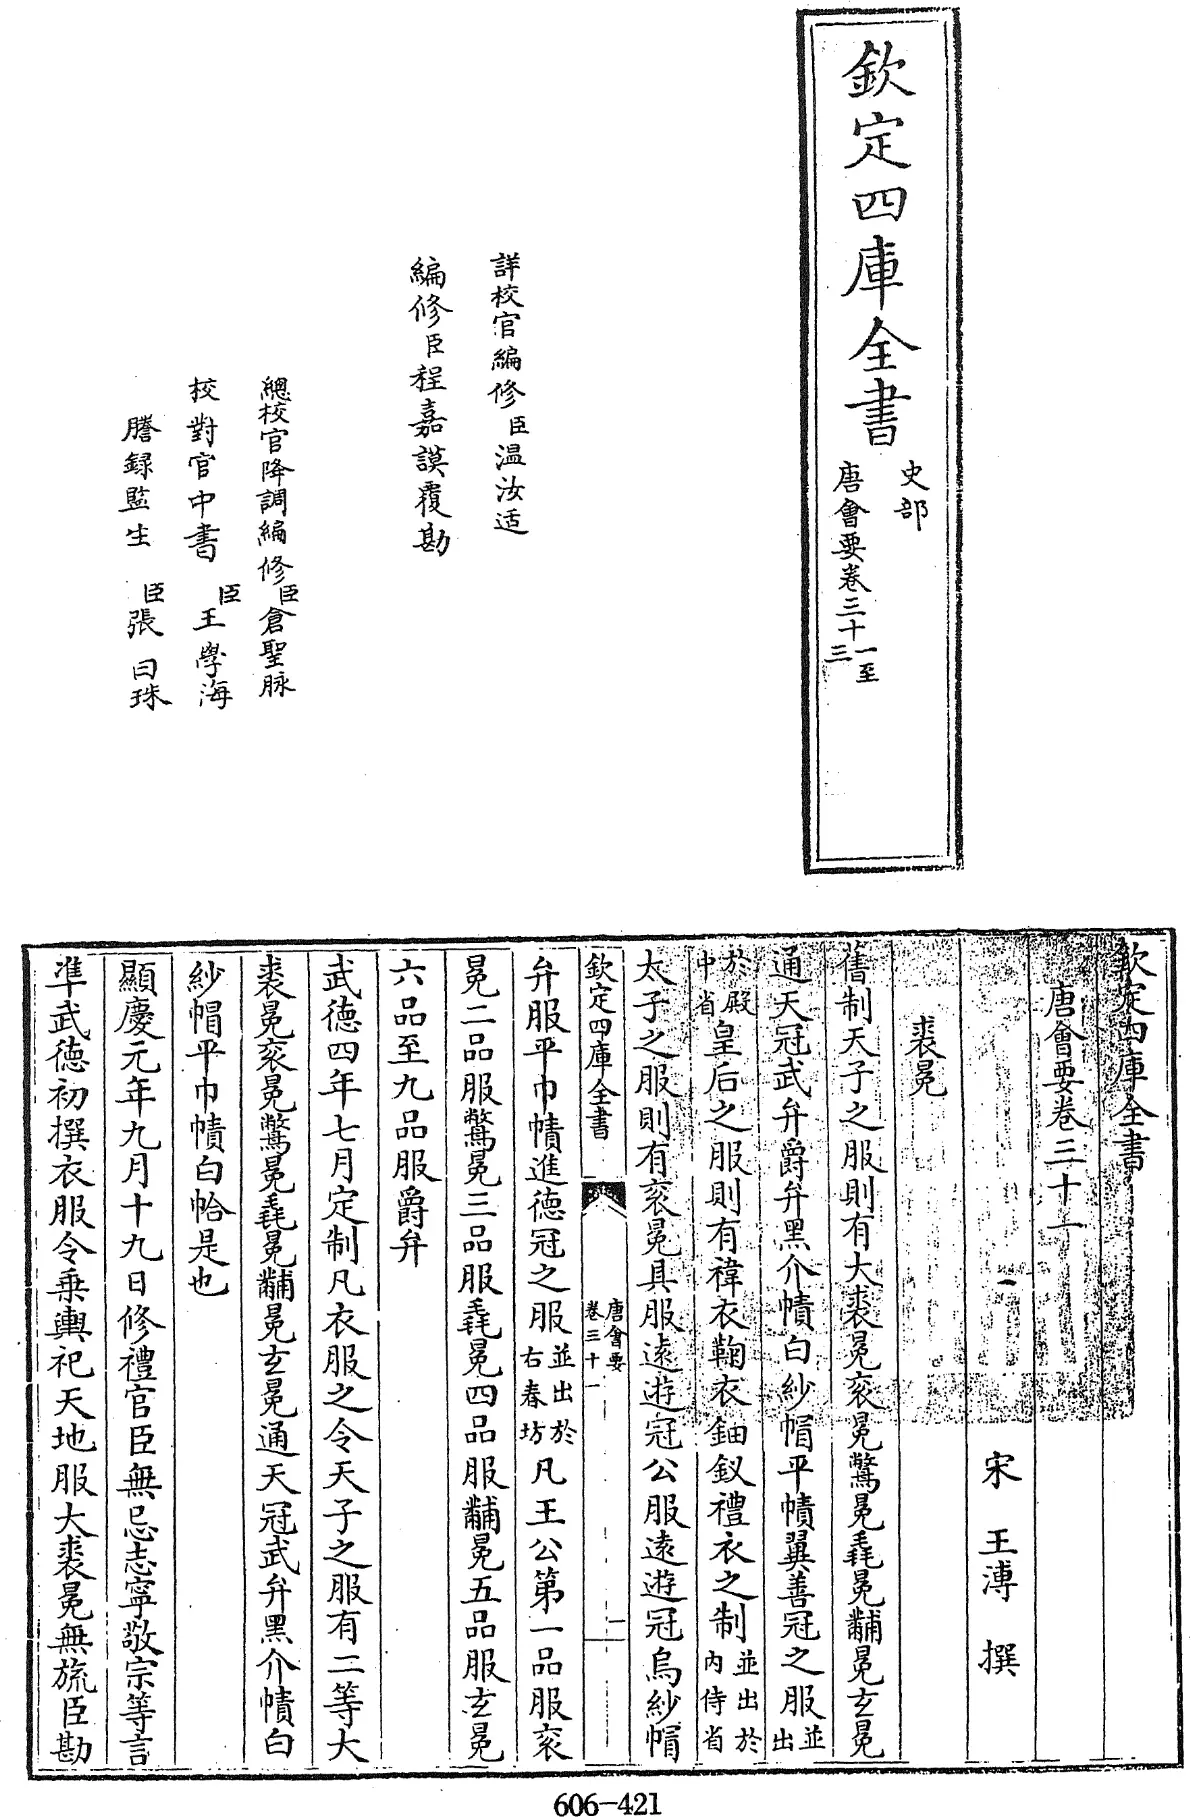 欽定四庫全書
史部
唐會要卷三十一至
三
詳校官編修臣温汝适
編修臣程嘉謨覆勘
總校官降調編修臣倉聖脉
校對官中書臣王學海
謄録監生臣張曰珠
欽定四庫全書
唐會要卷三十一
宋王溥撰
裘冕
舊制天子之服則有大裘冕衮冕鷩冕毳冕黼冕玄冕
通天冠武弁爵弁黑介幘白紗帽平幘翼善冠之服並出
於殿中省皇后之服則有褘衣鞠衣鈿釵禮衣之制並出於内侍省
太子之服則有衮冕具服遠遊冠公服遠遊冠烏紗帽
欽定四庫全書
唐會要
卷三十一
一
弁服平巾幘進德冠之服並出於右春坊凡王公第一品服衮
冕二品服鷩冕三品服毳冕四品服黼冕五品服玄冕
六品至九品服爵弁
武德四年七月定制凡衣服之令天子之服有二等大
裘冕衮冕鷩冕毳冕黼冕玄冕通天冠武弁黑介幘白
紗帽平巾幘白帢是也
顯慶元年九月十九日修禮官臣無忌志寧敬宗等言
準武德初撰衣服令乗輿祀天地服大裘冕無旒臣勘
606-421